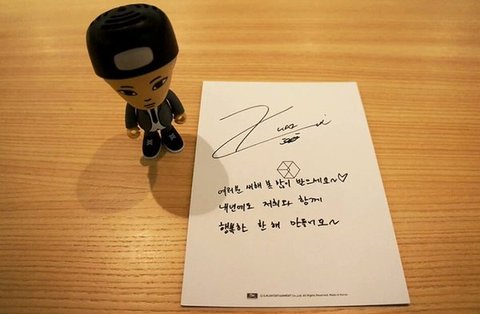 여러분 새해 복 많이 받으세요~♡
내년에도 저희와 함께
행복한 한 해 만들어요~
© S.M.ENTERTAINMENT Co.,Ltd. All Rights Reserved. Made in Korea